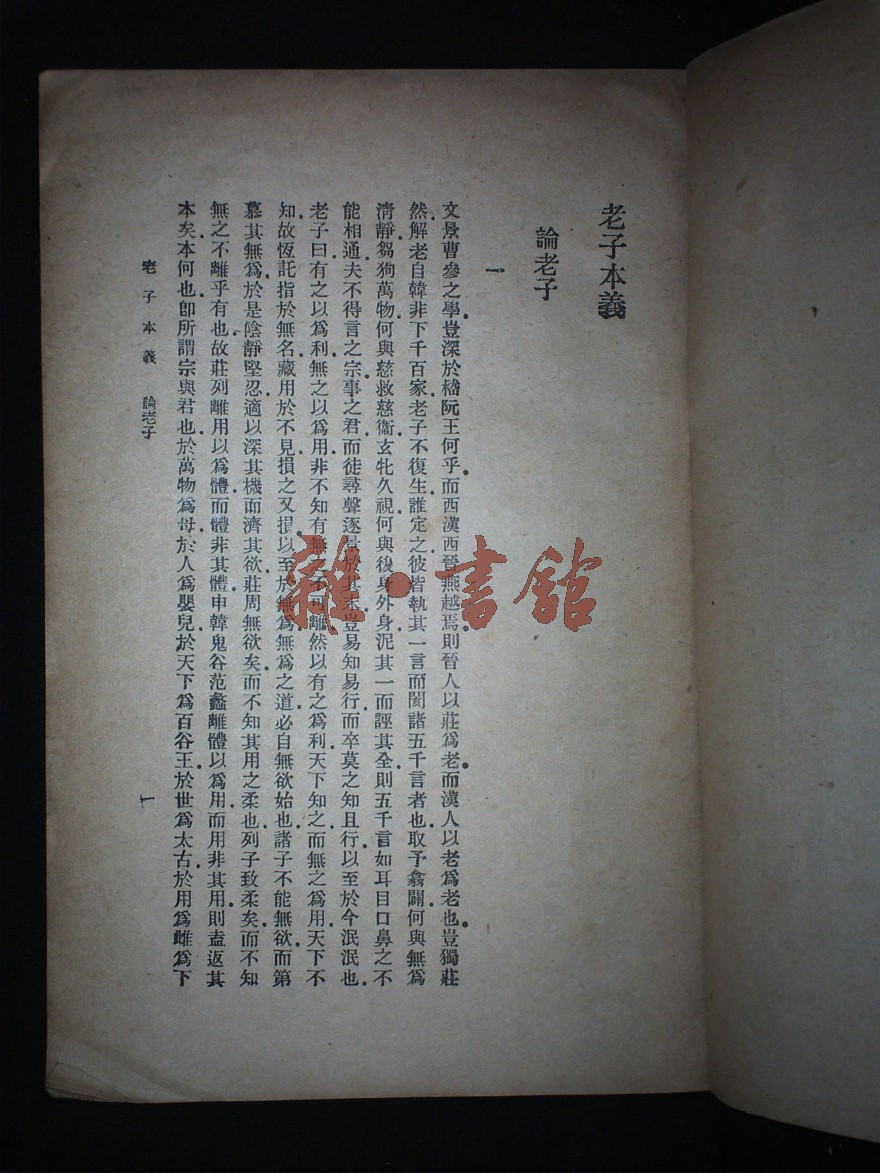 老子本義
論老子
一
文景曹參之學豈深於嵇阮王何乎而西漢西晉燕越焉則晉人以莊爲老而漢人以老爲老也豈獨莊
然解老自韓非下千百家老子不復生誰定之彼皆執其一言而閡諸五千言者也取予翕闢何與無爲
淸靜芻狗萬物何與慈救慈衞玄牝久視何與後身外身泥其一而誣其全則五千言如耳目口鼻之不
能相通夫不得言之宗事之君而徒尋聲逐景於其末豈易知易行而卒莫之知且行以至於今泯泯也
老子曰有之以爲利無之以爲用非不知有無之不可離然以有之爲利天下知之而無之爲用天下不
知故恆託指於無名藏用於不見損之又損以至於無爲無爲之道必自無欲始也諸子不能無欲而第
慕其無爲於是陰靜堅忍適以深其機而濟其欲莊周無欲矣而不知其用之柔也列子致柔矣而不知
無之不離乎有也故莊列離用以爲體而體非其體申韓鬼谷范蠡離體以爲用而用非其用則盍返其
本矣本何也卽所謂宗與君也於萬物爲母於人爲嬰兒於天下爲百谷王於世爲太古於用爲雌爲下
老子本義 論老子
一
雜·書館